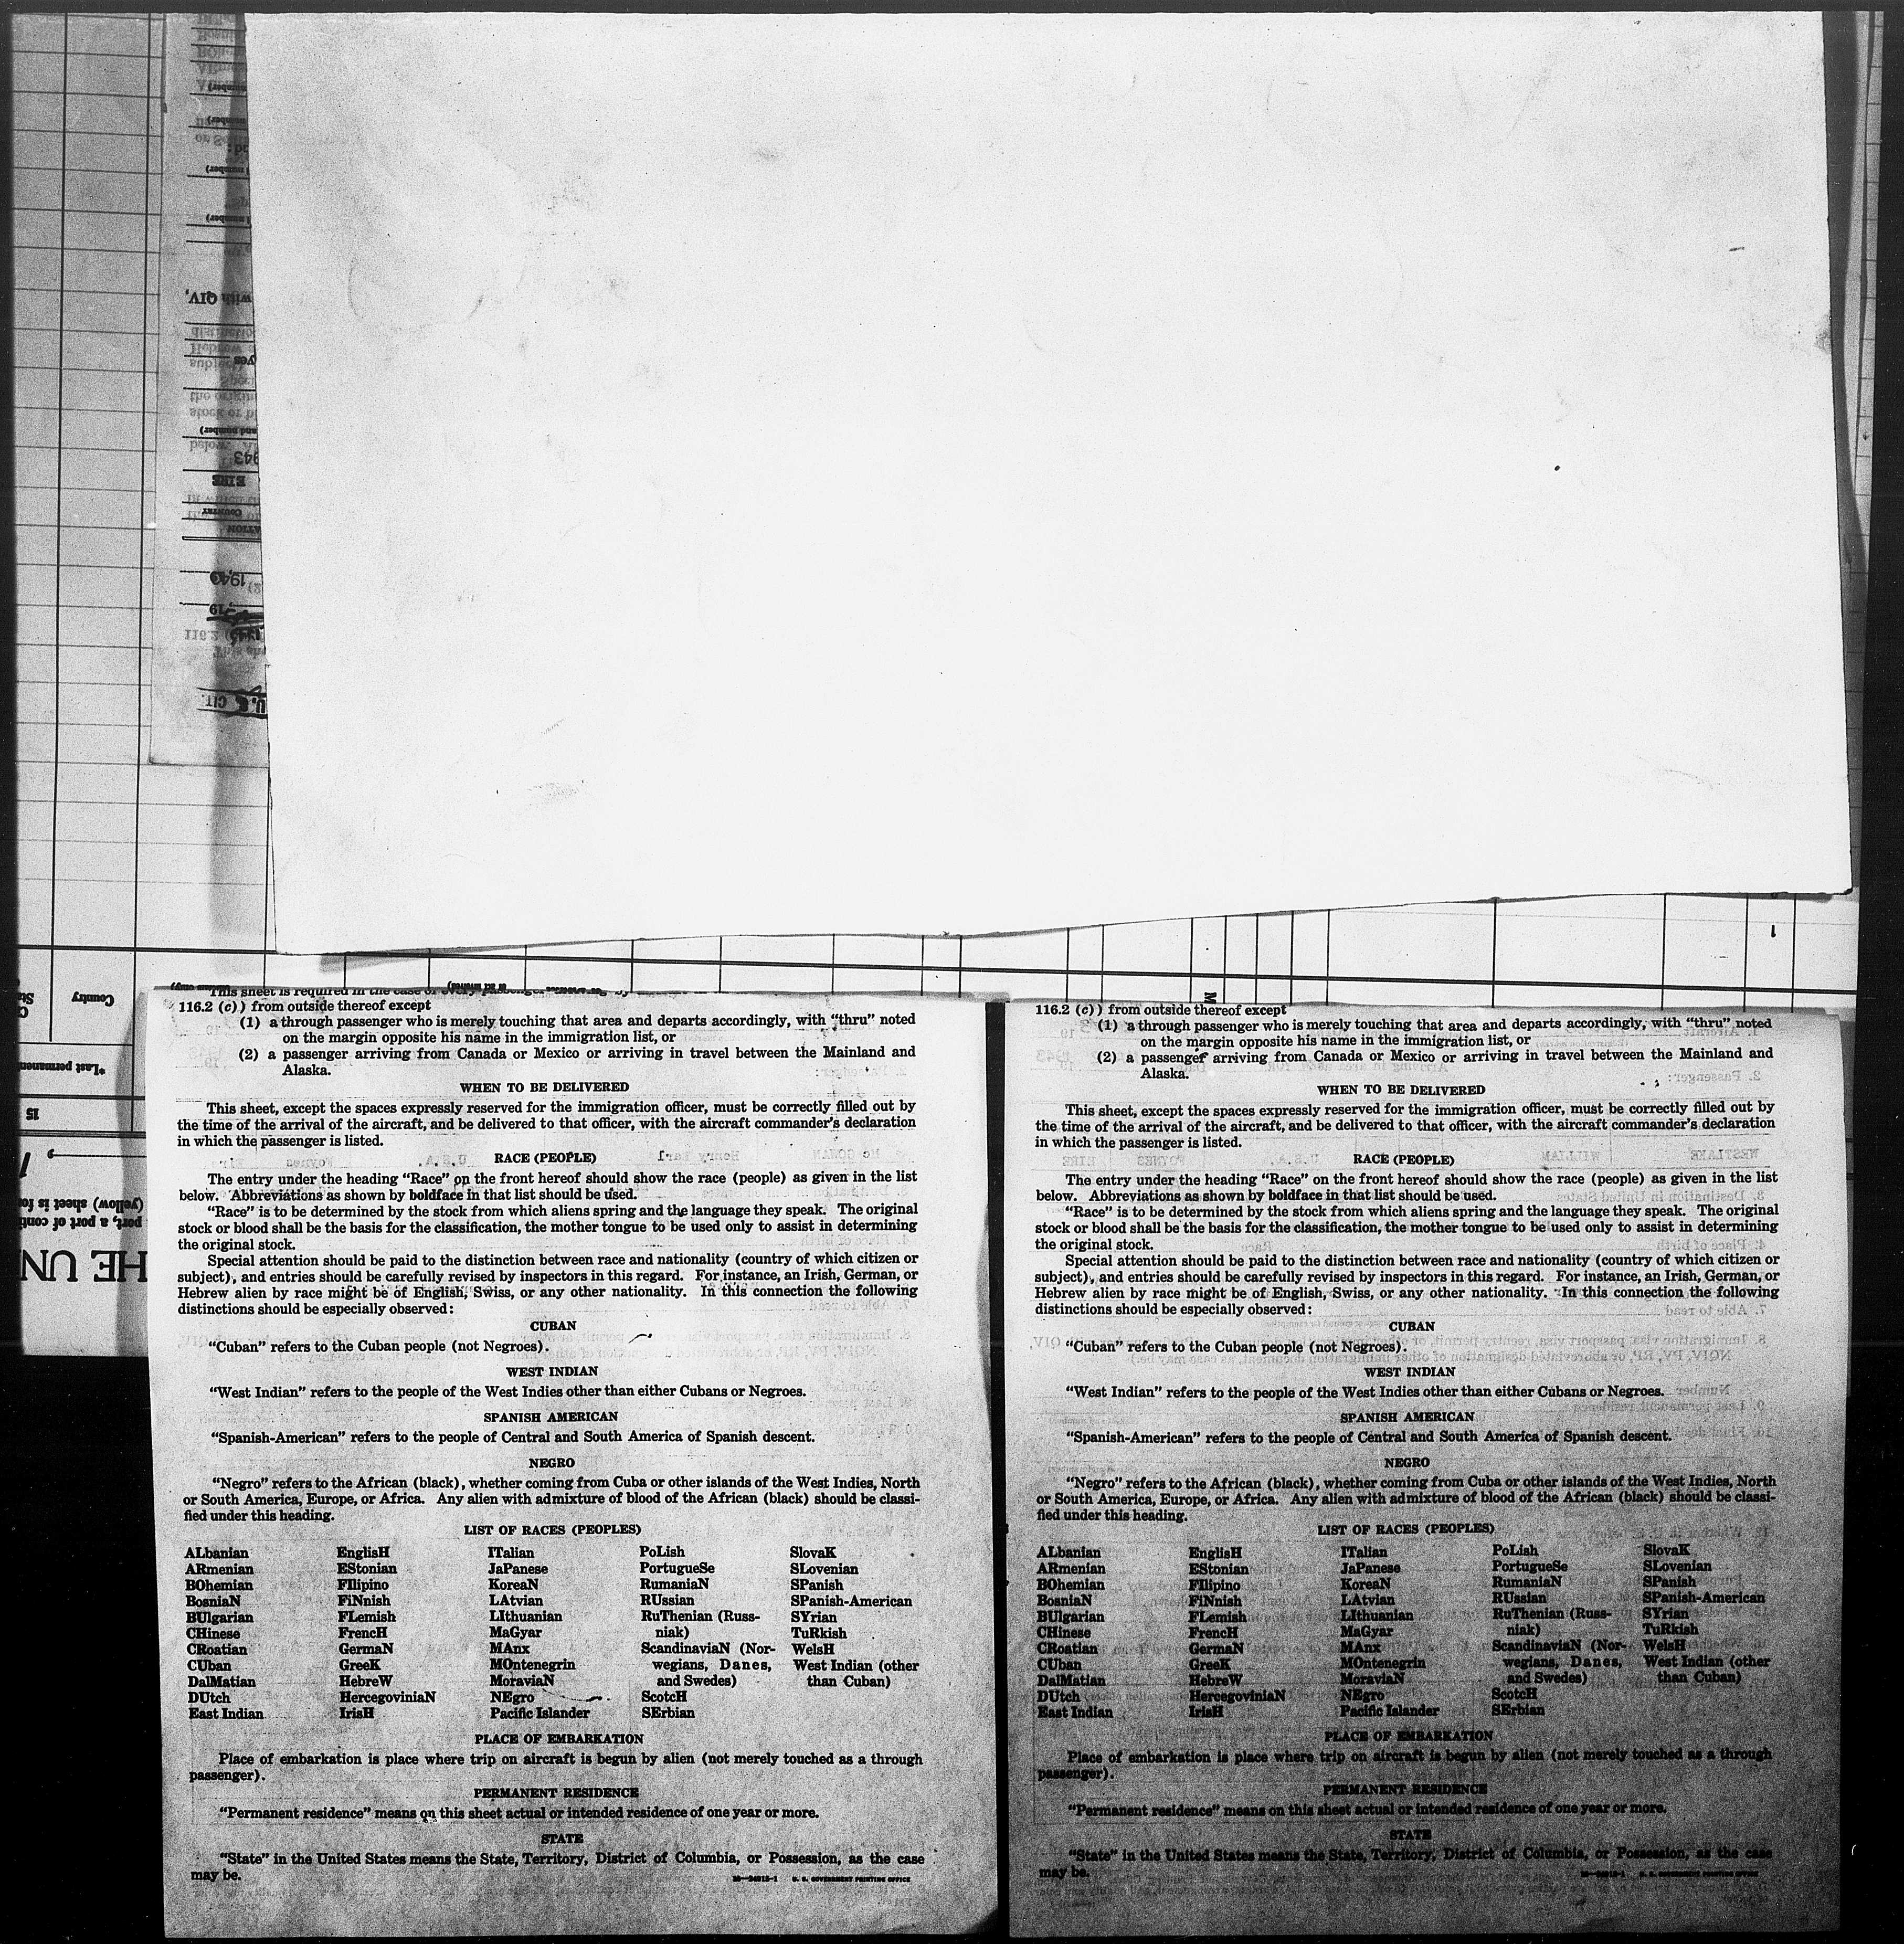 This sheet is required in the case of every passenger
116.2 (c)) from outside thereof except
(1) a through passenger who is merely touching that area and departs accordingly, with “thru” noted
on the margin opposite his name in the immigration list, or
(2) a passenger arriving from Canada or Mexico or arriving in travel between the Mainland and
Alaska.
WHEN TO BE DELIVERED
This sheet, except the spaces expressly reserved for the immigration officer, must be correctly filled out by
the time of the arrival of the aircraft, and be delivered to that officer, with the aircraft commander’s declaration
in which the passenger is listed.
RACE (PEOPLE)
The entry under the heading “Race” on the front hereof should show the race (people) as given in the list
below. Abbreviations as shown by boldface in that list should be used.
“Race” is to be determined by the stock from which aliens spring and the language they speak. The original
stock or blood shall be the basis for the classification, the mother tongue to be used only to assist in determining
the original stock.
Special attention should be paid to the distinction between race and nationality (country of which citizen or
subject), and entries should be carefully revised by inspectors in this regard. For instance, an Irish, German, or
Hebrew alien by race might be of English, Swiss, or any other nationality. In this connection the following
distinctions should be especially observed:
CUBAN
“Cuban” refers to the Cuban people (not Negroes).
WEST INDIAN
“West Indian” refers to the people of the West Indies other than either Cubans or Negroes.
SPANISH AMERICAN
“Spanish-American” refers to the people of Central and South America of Spanish descent.
NEGRO
“Negro” refers to the African (black), whether coming from Cuba or other islands of the West Indies, North
or South America, Europe, or Africa. Any alien with admixture of blood of the African (black) should be classi-
fied under this heading.
LIST OF RACES (PEOPLES)
ALbanian EnglisH ITalian PoLish SlovaK
ARmenian EStonian JaPanese PortugueSe SLovenian
BOhemian FIlipino KoreaN RumaniaN SPanish
BosniaN FiNnish LAtvian RUssian SPanish-American
BUlgarian FLemish LIthuanian RuThenian (Russ- SYrian
CHinese FrencH MaGyar niak) TuRkish
CRoatian GermaN MAnx ScandinaviaN (Nor- WelsH
CUban GreeK MOntenegrin wegians, Danes, West Indian (other
DalMatian HebreW MoraviaN and Swedes) than Cuban)
DUtch HercegoviniaN NEgro ScotcH
East Indian IrisH Pacific Islander SErbian
PLACE OF EMBARKATION
Place of embarkation is place where trip on aircraft is begun by alien (not merely touched as a through
passenger).
PERMANENT RESIDENCE
“Permanent residence” means on this sheet actual or intended residence of one year or more.
STATE
“State” in the United States means the State, Territory, District of Columbia, or Possession, as the case
may be.
16—24915-1 U. S. GOVERNMENT PRINTING OFFICE
116.2 (c)) from outside thereof except
(1) a through passenger who is merely touching that area and departs accordingly, with “thru” noted
on the margin opposite his name in the immigration list, or
(2) a passenger arriving from Canada or Mexico or arriving in travel between the Mainland and
Alaska.
WHEN TO BE DELIVERED
This sheet, except the spaces expressly reserved for the immigration officer, must be correctly filled out by
the time of the arrival of the aircraft, and be delivered to that officer, with the aircraft commander’s declaration
in which the passenger is listed.
RACE (PEOPLE)
The entry under the heading “Race” on the front hereof should show the race (people) as given in the list
below. Abbreviations as shown by boldface in that list should be used.
“Race” is to be determined by the stock from which aliens spring and the language they speak. The original
stock or blood shall be the basis for the classification, the mother tongue to be used only to assist in determining
the original stock.
Special attention should be paid to the distinction between race and nationality (country of which citizen or
subject), and entries should be carefully revised by inspectors in this regard. For instance, an Irish, German, or
Hebrew alien by race might be of English, Swiss, or any other nationality. In this connection the following
distinctions should be especially observed:
CUBAN
“Cuban” refers to the Cuban people (not Negroes).
WEST INDIAN
“West Indian” refers to the people of the West Indies other than either Cubans or Negroes.
SPANISH AMERICAN
“Spanish-American” refers to the people of Central and South America of Spanish descent.
NEGRO
“Negro” refers to the African (black), whether coming from Cuba or other islands of the West Indies, North
or South America, Europe, or Africa. Any alien with admixture of blood of the African (black) should be classi-
fied under this heading.
LIST OF RACES (PEOPLES)
ALbanian EnglisH ITalian PoLish SlovaK
ARmenian EStonian JaPanese PortugueSe SLovenian
BOhemian FIlipino KoreaN RumaniaN SPanish
BosniaN FiNnish LAtvian RUssian SPanish-American
BUlgarian FLemish LIthuanian RuThenian (Russ- SYrian
CHinese FrencH MaGyar niak) TuRkish
CRoatian GermaN MAnx ScandinaviaN (Nor- WelsH
CUban GreeK MOntenegrin wegians, Danes, West Indian (other
DalMatian HebreW MoraviaN and Swedes) than Cuban)
DUtch HercegoviniaN NEgro ScotcH
East Indian IrisH Pacific Islander SErbian
PLACE OF EMBARKATION
Place of embarkation is place where trip on aircraft is begun by alien (not merely touched as a through
passenger).
PERMANENT RESIDENCE
“Permanent residence” means on this sheet actual or intended residence of one year or more.
STATE
“State” in the United States means the State, Territory, District of Columbia, or Possession, as the case
may be.
16—24915-1 U. S. GOVERNMENT PRINTING OFFICE
with QIV,
yes
EIRE
COUNTRY
1943
U.S. CIT.
Country
*Last permanen
15
(yellow) sheet is fo
port, a port of cont
HE UN
1